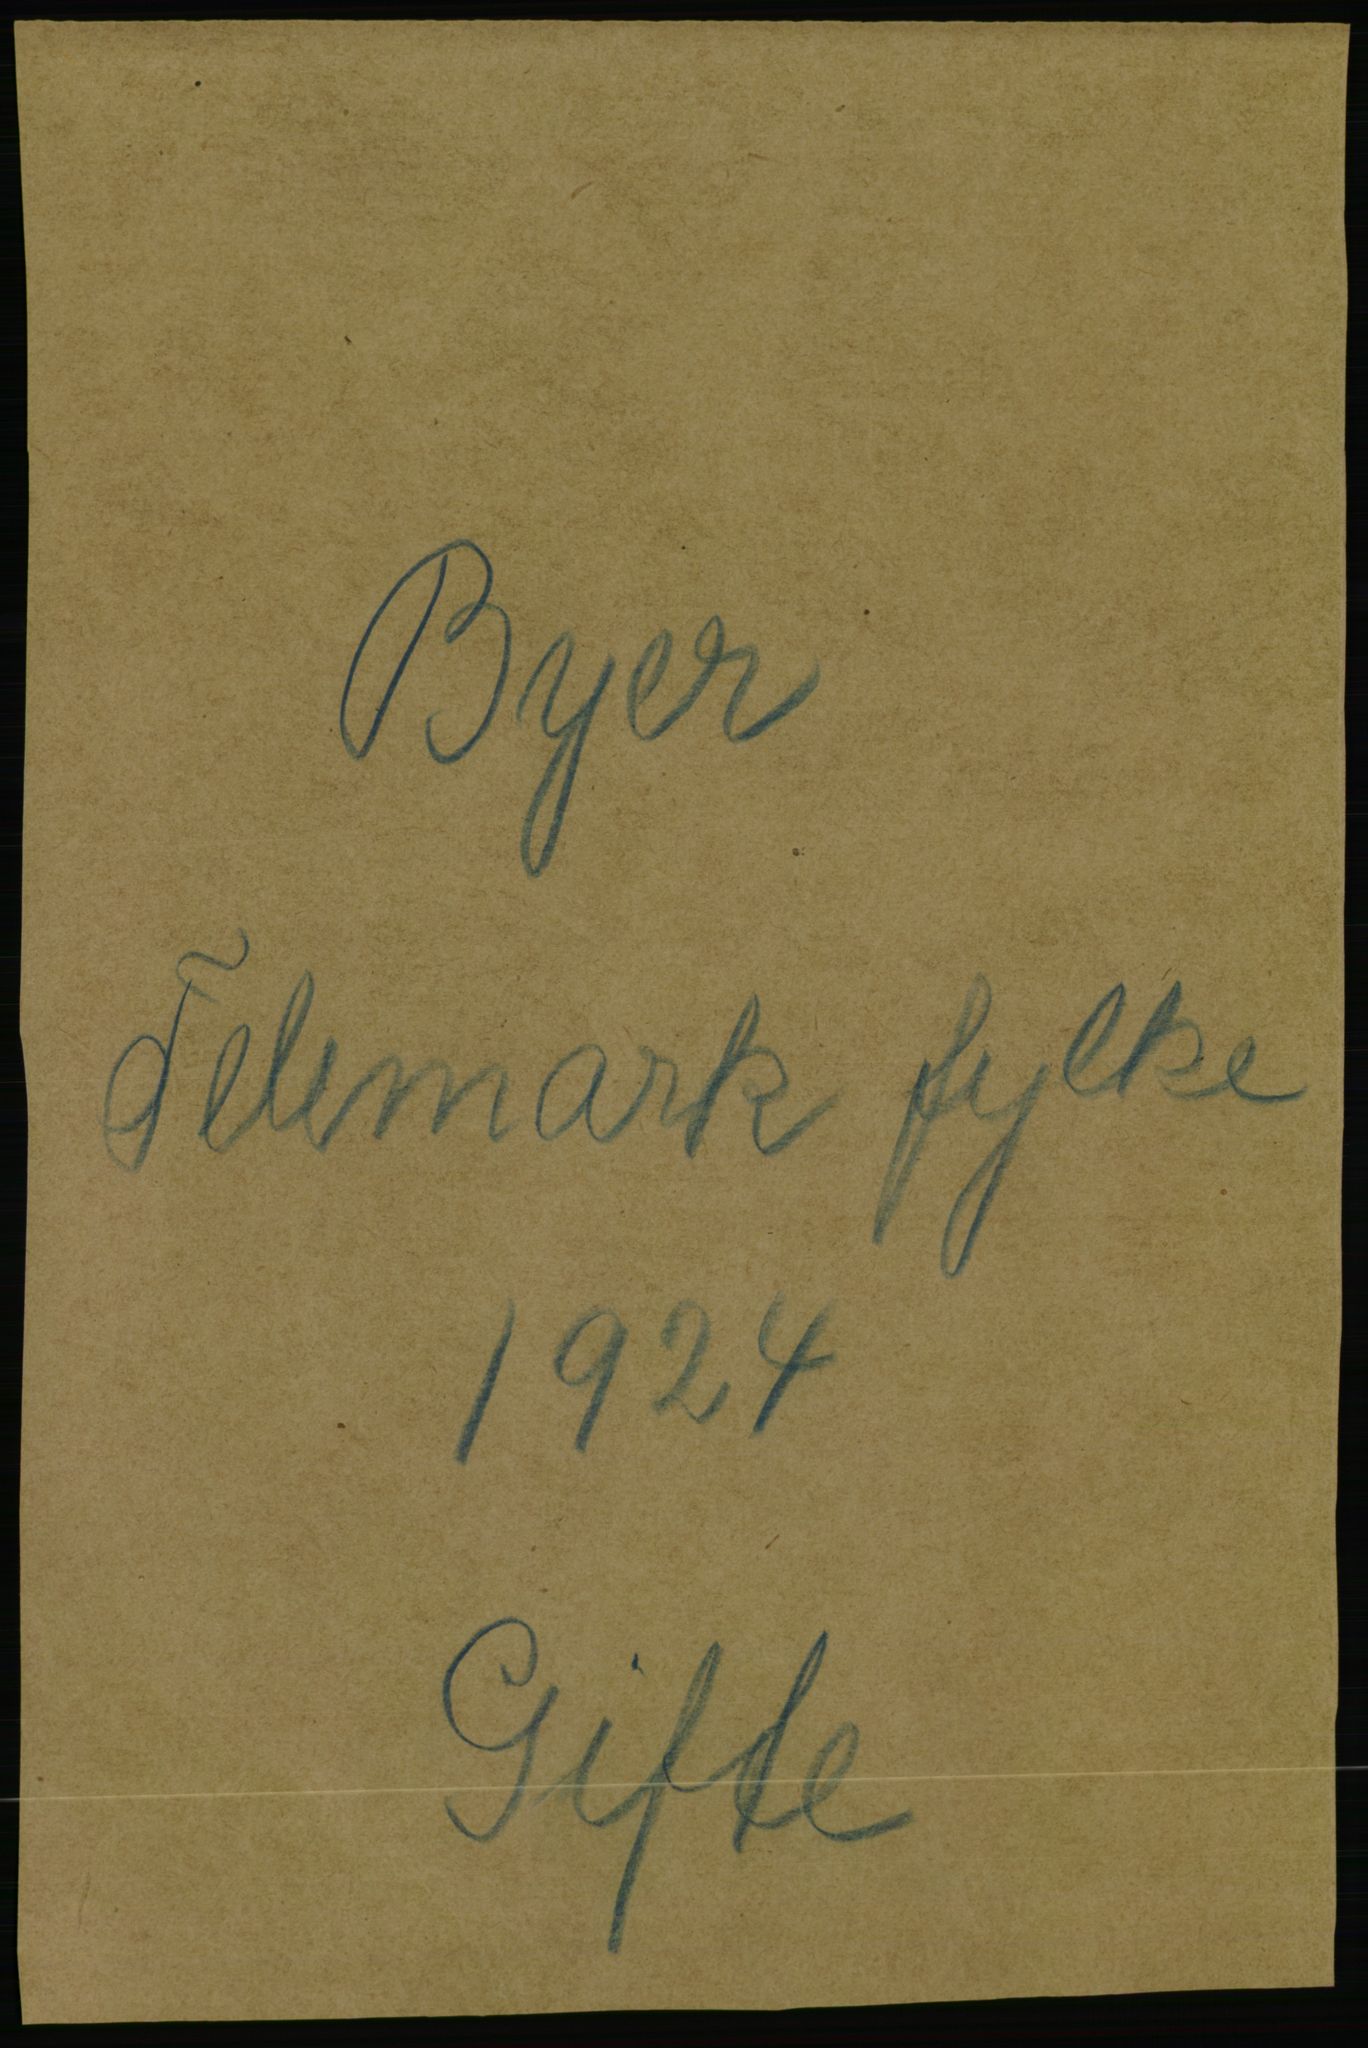 Byer
Telemark fylke
1924
Gifte